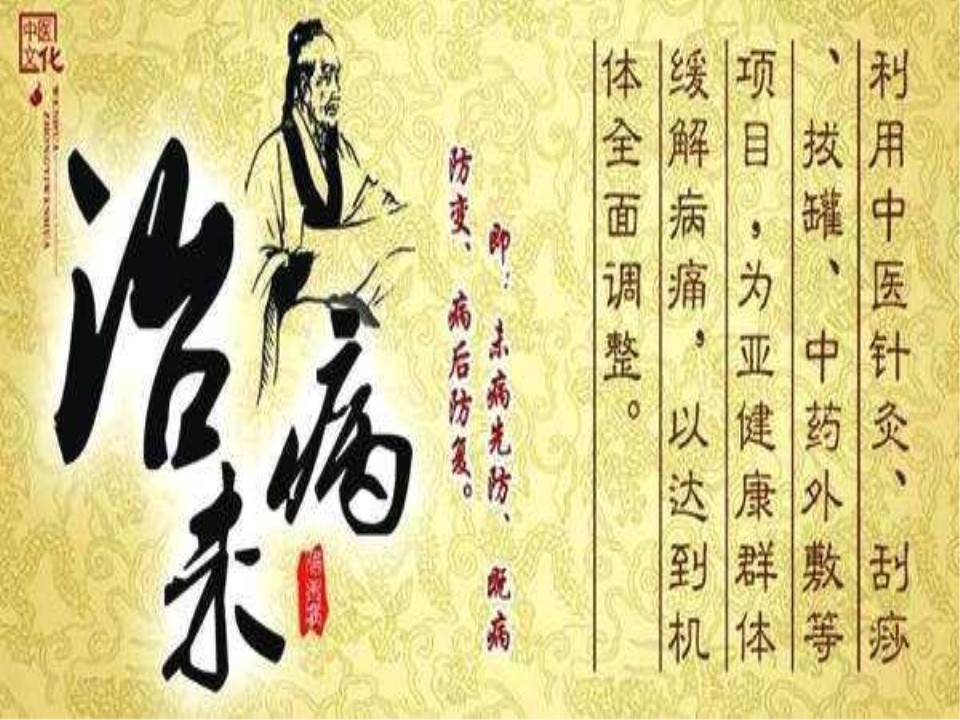 中医
文化
WENHUA
ZHONGYIWENHUA
治未病
即：未病先防、既病
防变、病后防复。
利用中医针灸、刮痧
、拔罐、中药外敷等
项目，为亚健康群体
缓解病痛，以达到机
体全面调整。